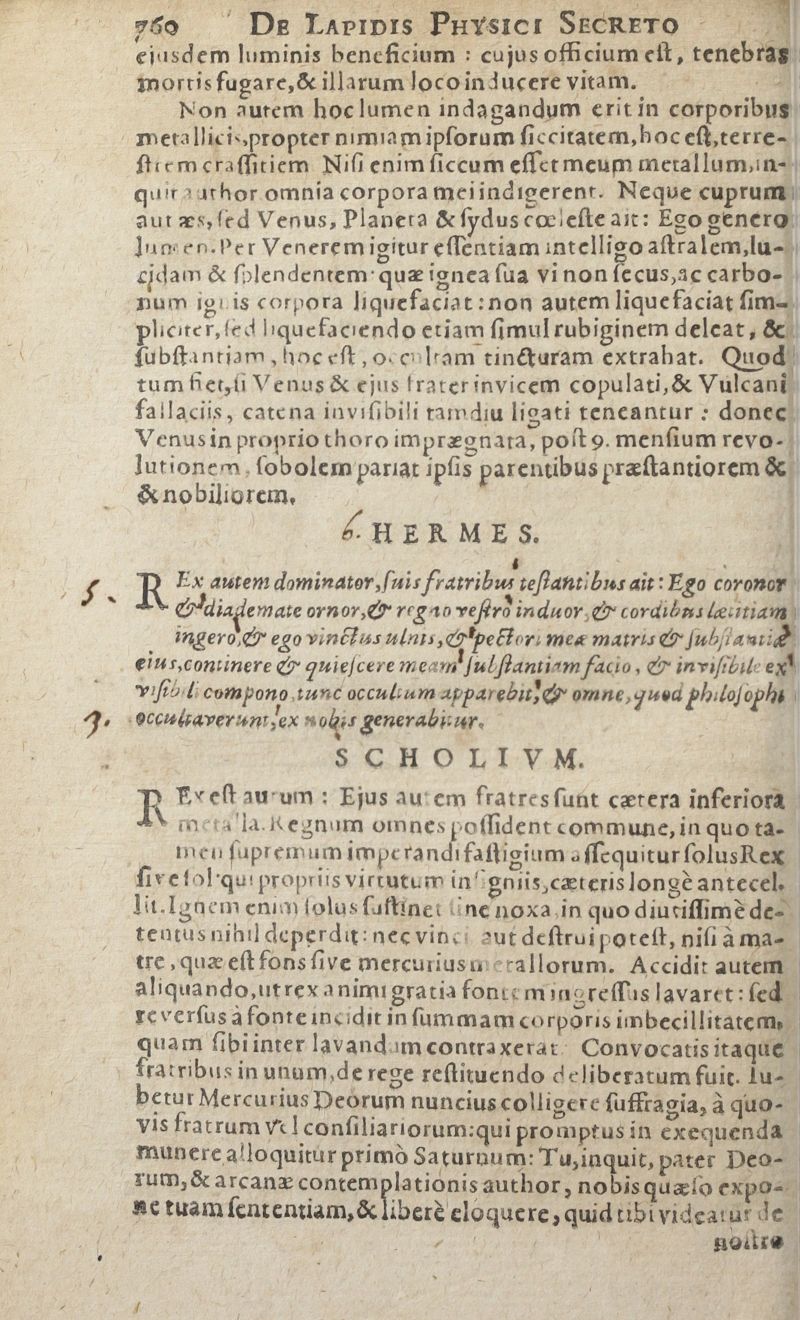 760 DE LAPIDIS PHYSICI SECRETO
ejusdem luminis beneficium : cujus officium eſt, tenebras
mortis fugare,& illarum loco inducere vitam.
Non autem hoc lumen indagandum erit in corporibus
metallicis,propter nimiam ipſorum ſiccitatem,hoc eſt,terre-
ſtrem craſſitiem Niſi enim ſiccum eſſet meum metallum,in-
quit author omnia corpora mei indigerent. Neque cuprum
aut æs,ſed Venus, Planeta & ſydus cœleſte ait: Ego genero
lumen.Per Venerem igitur eſſentiam intelligo aſtralem,lu-
cidam & ſplendentem quæ ignea ſua vi non ſecus,ac carbo-
num ignis corpora liquefaciat :non autem liquefaciat ſim-
pliciter,ſed liquefaciendo etiam ſimul rubiginem deleat, &
ſubſtantiam , hoc eſt , occultam tincturam extrahat. Quod
tum fiet,ſi Venus & ejus frater invicem copulati,& Vulcani
fallaciis, catena inviſibili tamdiu ligati teneantur : donec
Venus in proprio thoro imprægnata, poſt 9. menſium revo-
lutionem, ſobolem pariat ipſis parentibus præſtantiorem &
& nobiliorem.
6. HERMES.
5. REx autem dominator,ſuis fratribus teſtantibus ait: Ego coronor
& diademate ornor,& regno veſtro induor,& cordibus lætitiam
ingero,& ego vinctus ulnis,& pectori meæ matris & ſubſtantiæ
eius,continere & quieſcere meam ſubſtantiam facio, & inviſibile ex
viſibili compono,tunc occultum apparebit,& omne,quod philoſophi
7. occultaverunt,ex nobis generabitur.
SCHOLIVM.
REx eſt aurum : Ejus autem fratres ſunt cætera inferiora
metalla. Regnum omnes poſſident commune, in quo ta-
men ſupremum imperandi faſtigium aſſequitur ſolus Rex
ſive ſol qui propriis virtutum inſigniis,cæteris longè antecel-
lit.Ignem enim ſolus ſuſtinet ſine noxa in quo diutiſſimè de-
tentus nihil deperdit: nec vinci aut deſtrui poteſt, niſi à ma-
tre , quæ eſt fons ſive mercurius metallorum. Accidit autem
aliquando,ut rex animi gratia fontem ingreſſus lavaret : ſed
reverſus à fonte incidit in ſummam corporis imbecillitatem,
quam ſibi inter lavandum contraxerat. Convocatis itaque
fratribus in unum,de rege reſtituendo deliberatum fuit. Iu-
betur Mercurius Deorum nuncius colligere ſuffragia, à quo-
vis fratrum vel conſiliariorum:qui promptus in exequenda
munere alloquitur primò Saturnum: Tu,inquit, pater Deo-
rum,& arcanæ contemplationis author, nobis quæſo expo-
ne tuam ſententiam,& liberè eloquere, quid tibi videatur de
noſtro